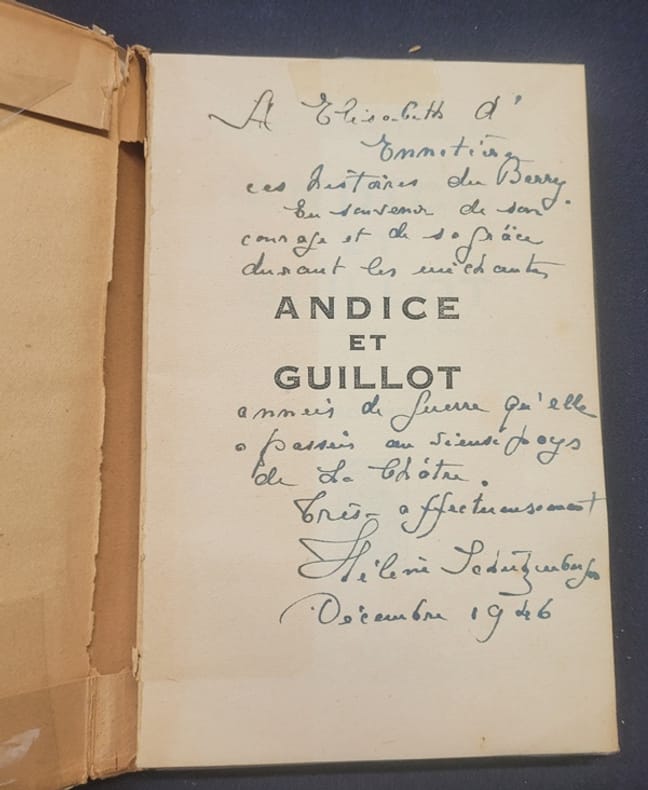 A Elisabeth d'
Ennetières
ces histoires du Berry
En souvenir de son
courage et de sa grâce
durant les méchantes
ANDICE
ET
GUILLOT
années de guerre qu'elle
a passées au vieux pays
de La Châtre.
Très affectueusement
Hélène
Décembre 1946